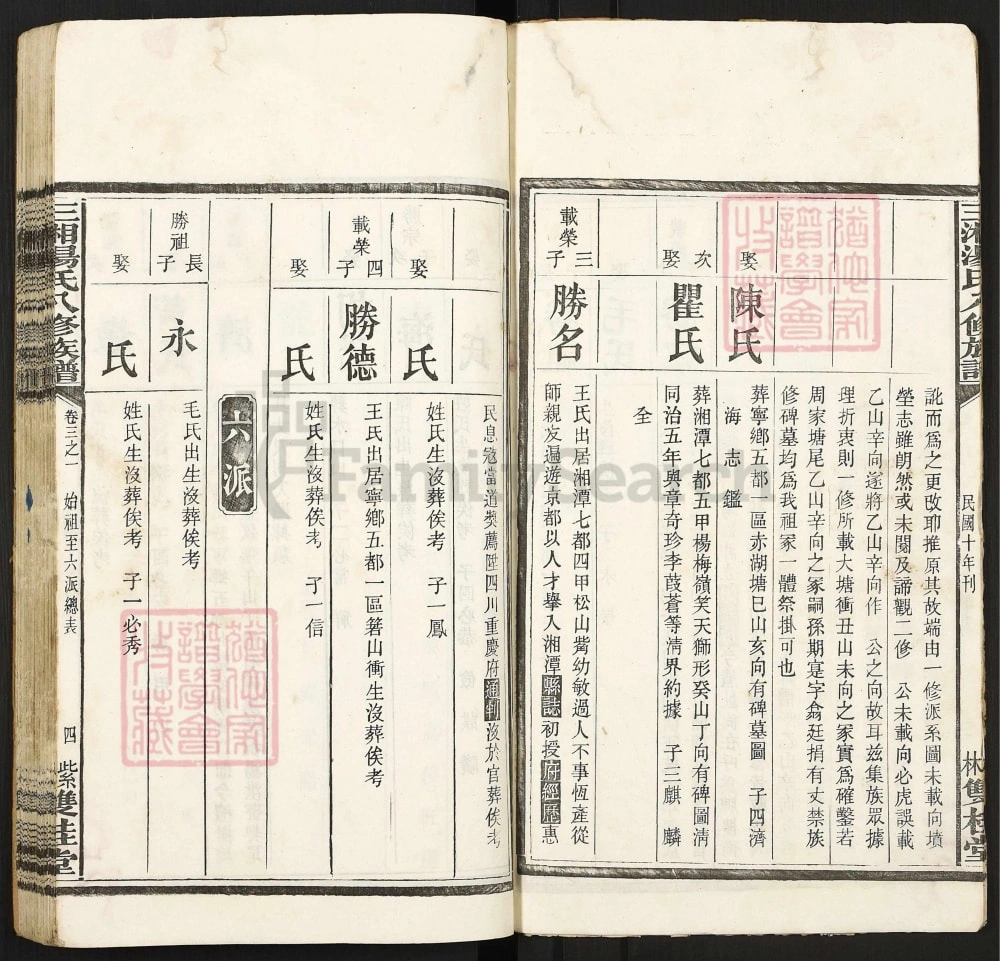 民國十年刊
訛而爲之更改耶推原其故端由一修派系圖未載向墳
塋志雖朗然或未閱及諦觀二修　公未載向必虎誤載
乙山辛向遂將乙山辛向作　公之向故耳茲集族眾據
理折衷則一修所載大塘衝丑山未向之冢實爲確鑿若
周家塘尾乙山辛向之冢嗣孫期寔字翕廷捐有丈禁族
修碑墓均爲我祖冢一體祭掛可也
娶
陳氏
葬寧鄉五都一區赤湖塘巳山亥向有碑墓圖　子四濟
海　志　鑑
次娶
瞿氏
葬湘潭七都五甲楊梅嶺笑天獅形癸山丁向有碑圖淸
同治五年與章奇珍李葭蒼等淸界約據　子三麒　麟
至
載榮三子
勝名
王氏出居湘潭七都四甲松山觜幼敏過人不事恆產從
師親友遍遊京都以人才舉入湘潭縣誌初授府經歷惠
民息寇當道奬薦陞四川重慶府通判沒於官葬俟考
娶
氏
姓氏生沒葬俟考　子一鳳
載榮四子
勝德
王氏出居寧鄉五都一區箬山衝生沒葬俟考
娶
氏
姓氏生沒葬俟考　子一信
六派
勝祖長子
永
毛氏出生沒葬俟考
娶
氏
姓氏生沒葬俟考　子一必秀
三湘湯氏八修族譜
卷三之一
始祖至六派總表
四
雙桂堂
FamilySearch